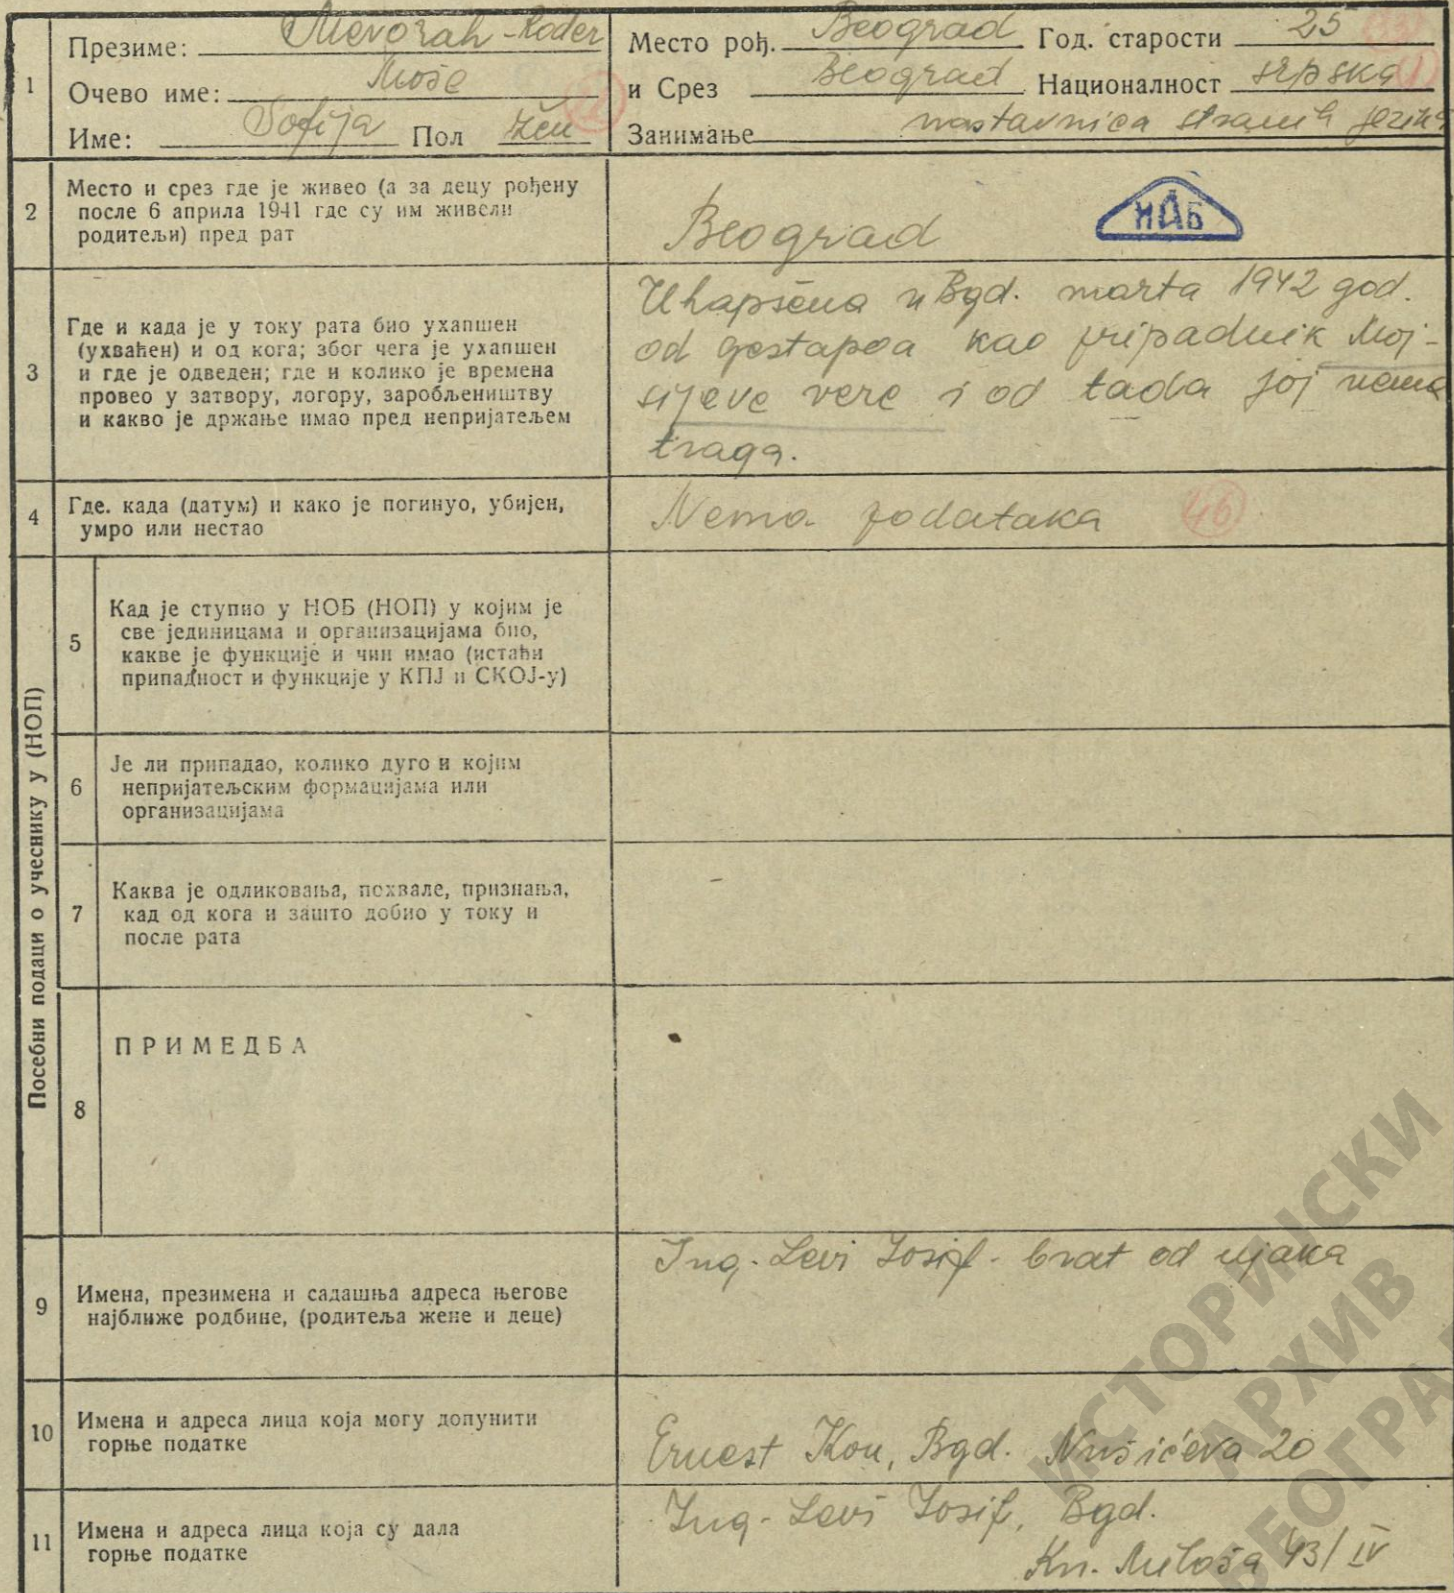 1
Презиме: Mevorah-Koder
Очево име: Moše
Име: Sofija Пол žen
Место рођ. Beograd Год. старости 25
и Срез Beograd Националност srpska (1)
Занимање nastavnica stranih jezika
2
Место и срез где је живео (а за децу рођену
после 6 априла 1941 где су им живели
родитељи) пред рат
Beograd
ИАБ
3
Где и када је у току рата био ухапшен
(ухваћен) и од кога; због чега је ухапшен
и где је одведен; где и колико је времена
провео у затвору, логору, заробљеништву
и какво је држање имао пред непријатељем
Uhapšena u Bgd. marta 1942 god.
od gestapoa kao pripadnik Moj-
sijeve vere i od tada joj nema
traga.
4
Где. када (датум) и како је погинуо, убијен,
умро или нестао
Nema podataka 46
Посебни подаци о учеснику у (НОП)
5
Кад је ступио у НОБ (НОП) у којим је
све јединицама и организацијама био,
какве је функције и чин имао (истаћи
припадност и функције у КПЈ и СКОЈ-у)
6
Је ли припадао, колико дуго и којим
непријатељским формацијама или
организацијама
7
Каква је одликовања, похвале, признања,
кад од кога и зашто добио у току и
после рата
8
ПРИМЕДБА
9
Имена, презимена и садашња адреса његове
најближе родбине, (родитеља жене и деце)
Ing. Levi Josif - brat od ujaka
10
Имена и адреса лица која могу допунити
горње податке
Ernest Kon, Bgd. Nušićeva 20
11
Имена и адреса лица која су дала
горње податке
Ing. Levi Josif, Bgd.
Kn. Miloša 43/IV
ИСТОРИЈСКИ
АРХИВ
БЕОГРА